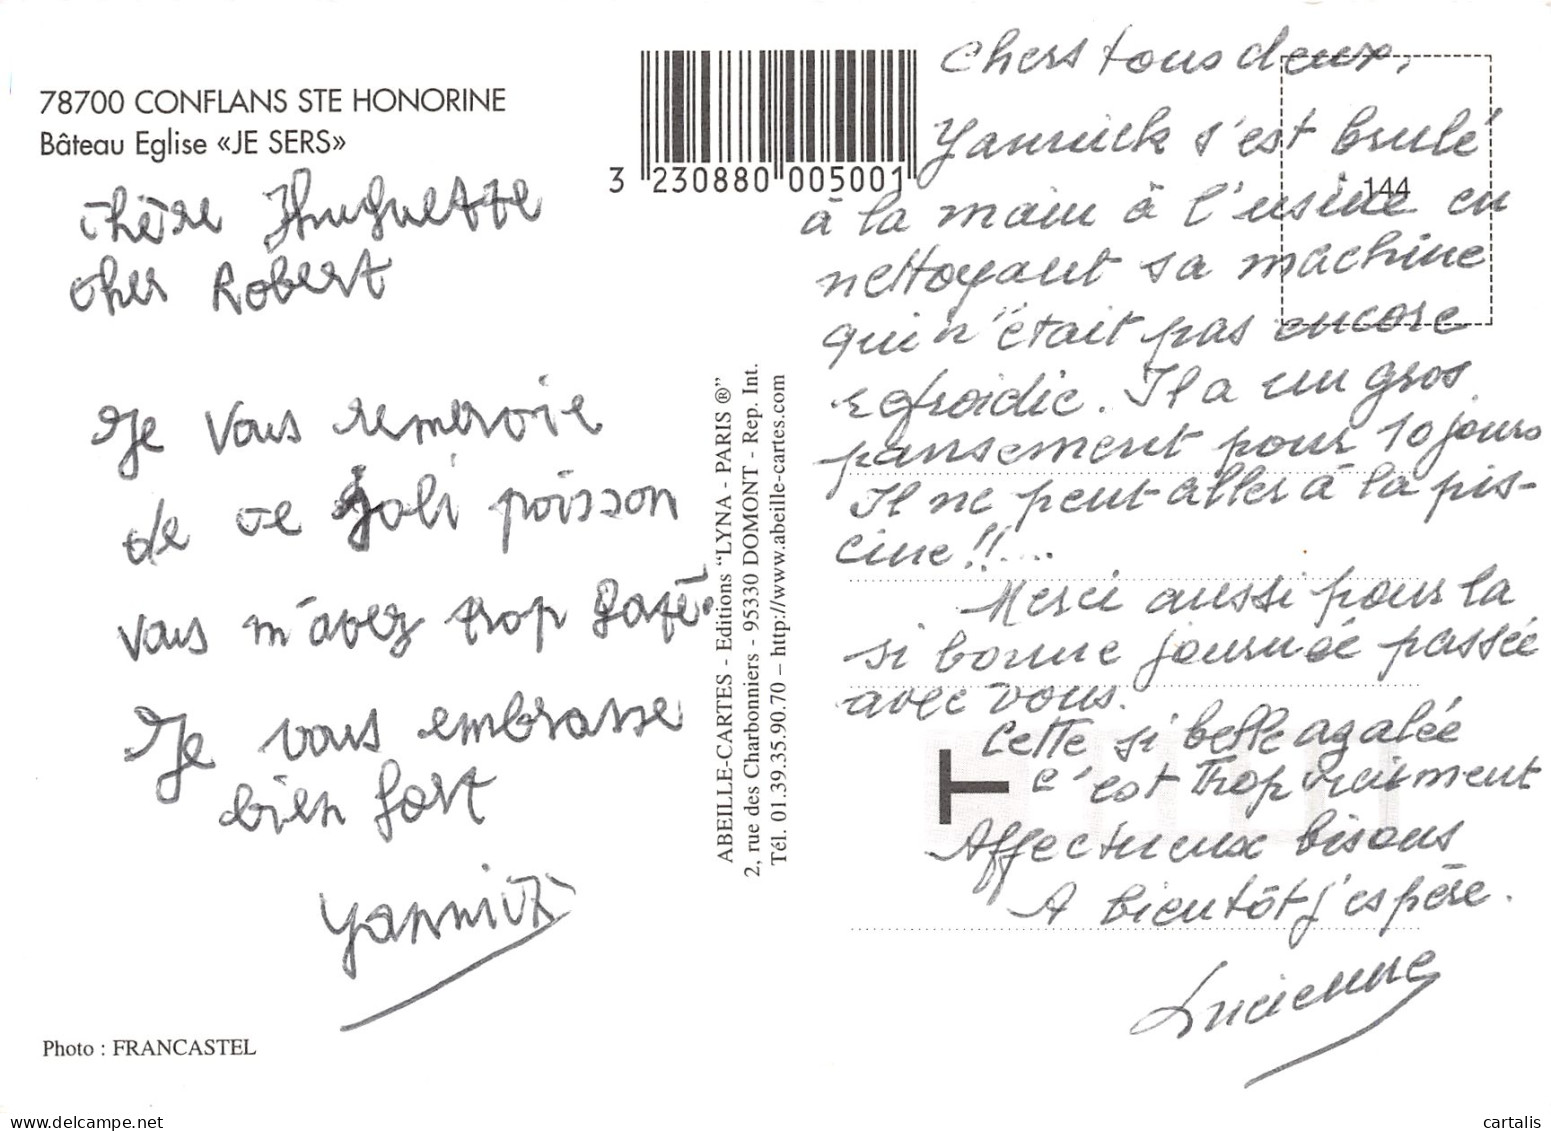 78700 CONFLANS STE HONORINE
Bâteau Eglise «JE SERS»
3 230880 005001
144
chère Huguette
cher Robert
Je vous remercie
de ce joli poisson
vous m'avez trop gaté.
Je vous embrasse
bien fort
yannick
Photo : FRANCASTEL
ABEILLE-CARTES - Editions “LYNA - PARIS ®”
2, rue des Charbonniers - 95330 DOMONT - Rep. Int.
Tél. 01.39.35.90.70 – http://www.abeille-cartes.com
Chers tous deux,
Yannick s'est brulé
à la main à l'usine en
nettoyant sa machine
qui n'était pas encore
refroidie. Il a un gros
pansement pour 10 jours
Il ne peut aller à la pis-
cine !!....
Merci aussi pour la
si bonne journée passée
avec vous.
Cette si belle azalée
T
c'est trop vraiment
Affectueux bisous
A bientôt j'espère.
Lucienne
cartalis
www.delcampe.net